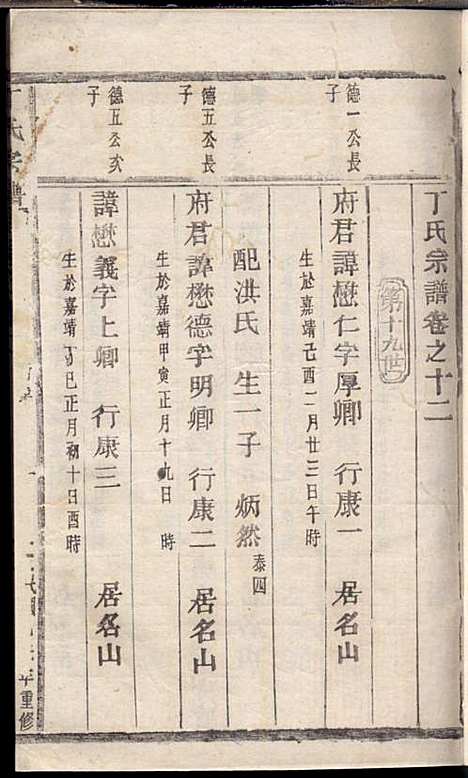 丁氏宗譜卷之十二
第十九世
德一公長子
府君諱懋仁字厚卿 行康一 居名山
生於嘉靖己酉二月廿三日午時
配洪氏 生一子 炳然 泰四
德五公長子
府君諱懋德字明卿 行康二 居名山
生於嘉靖甲寅正月十九日 時
德五公次子
諱懋義字上卿 行康三 居名山
生於嘉靖丁巳正月初十日酉時
丁氏宗譜
年重修